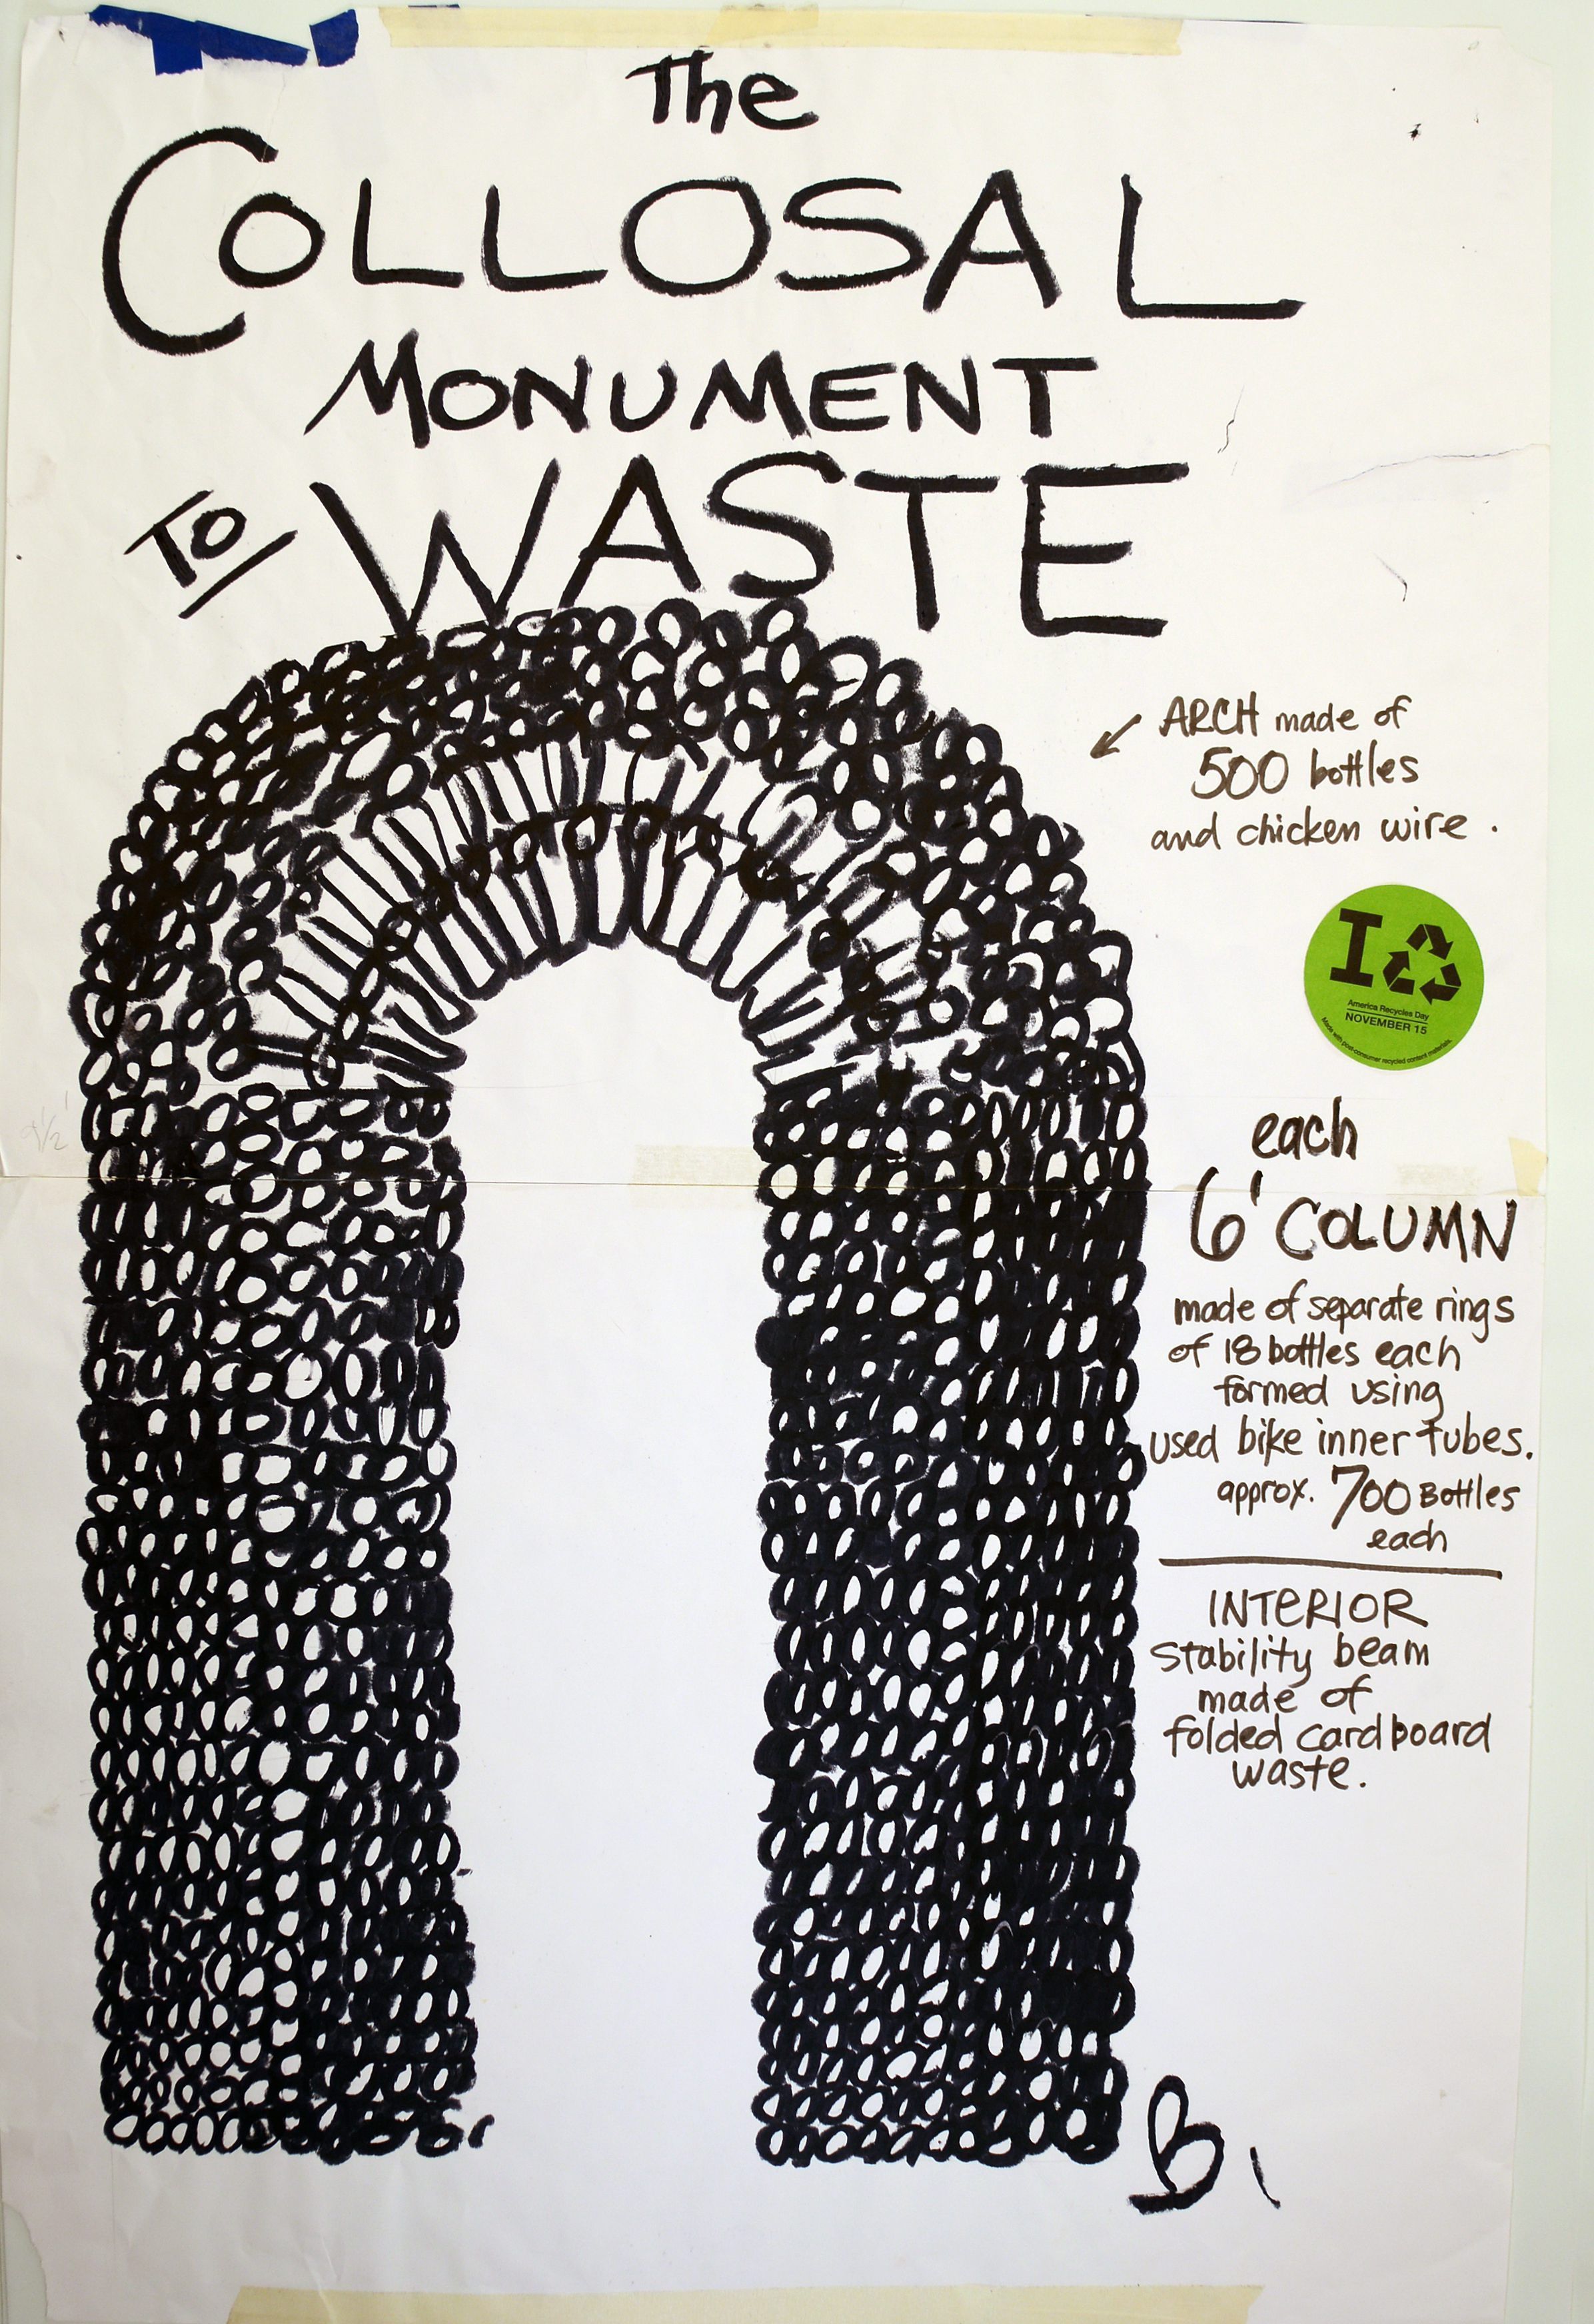 The
COLLOSAL
MONUMENT
TO WASTE
ARCH made of
500 bottles
and chicken wire.
I
America Recycles Day
NOVEMBER 15
Made with post-consumer recycled content materials.
9 1/2'
each
6' COLUMN
made of separate rings
of 18 bottles each
formed using
used bike inner tubes.
approx. 700 Bottles
each
INTERIOR
stability beam
made of
folded cardboard
waste.
B.